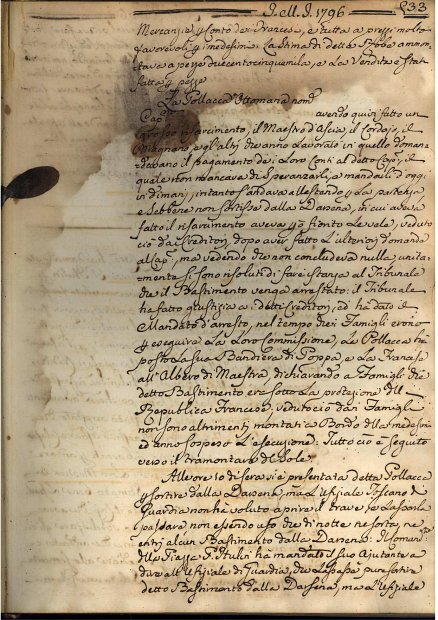 J. M. J. 1796 233
Mercanzie p Conto dei Francesi, e tutta a prezzi molto
favorevoli p i medesimi. La stima di dette Robe ammon-
tava a pezze duecentocinquemila, e La Vendita è stat
fatta p pezze
La Pollacca Ottomana nom
Cap avendo quivi fatto un
grosso risarcimento, il Maestro d'Ascia, il Cordajo, il
e gl'altri che anno Lavorato in quello doman-
davano il pagamento dei Loro Conti al detto Capo, il
quale non mancava di Speranzarli, e mandarli d'oggi
in dimani, intanto s'andava allestendo p La partenza
e Sebbene non sortisse dalla Darsena, in cui aveva
fatto il risarcimento aveva già fierito Le vele, veduto
ciò dai Creditori, dopo aver fatto L'ulteriori domande
al Cap, ma vedendo che non concludeva nulla unita-
mente si sono risoluti di fare istanza al Tribunale
che il Bastimento venga arrestato: il Tribunale
ha fatto giustizia a detti Creditori, ed ha dato il
Mandato d'arresto, nel tempo che i Famigli erono
p eseguire La Loro Commissione, La Pollacca ha
posto La sua Bandiera di Poppa, e La Francese
all'Albero di Maestra dichiarando a Famigli che
detto Bastimento era sotto La protezione della
Repubblica Francese, veduto ciò dai Famigli
non sono altrimenti montati a Bordo della medesima
ed anno sospeso L'esecuzione: Tutto ciò è seguito
verso il tramontare del Sole
All'ore 10 di sera si è presentata detta Pollacca
p sortire dalla Darsena, ma L'Ufiziale Toscano di
Guardia non ha voluto aprire il trave p Lasciarla
passare non essendo uso che di notte ne sorta, ne
entri alcun Bastimento dalla Darsena: Il Comand
della Piazza ha mandato il suo Ajutante a
dire all'Ufiziale di Guardia, che Lasciasse pure sortire
detto Bastimento dalla Darsena, ma L'Ufiziale